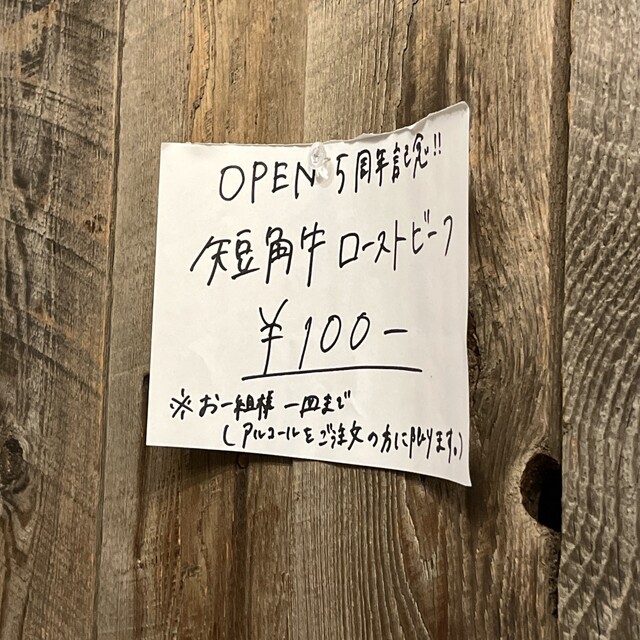 OPEN 5周年記念!!
短角牛 ローストビーフ
¥100-
※お一組様 一皿まで
(アルコールをご注文の方に限ります。)